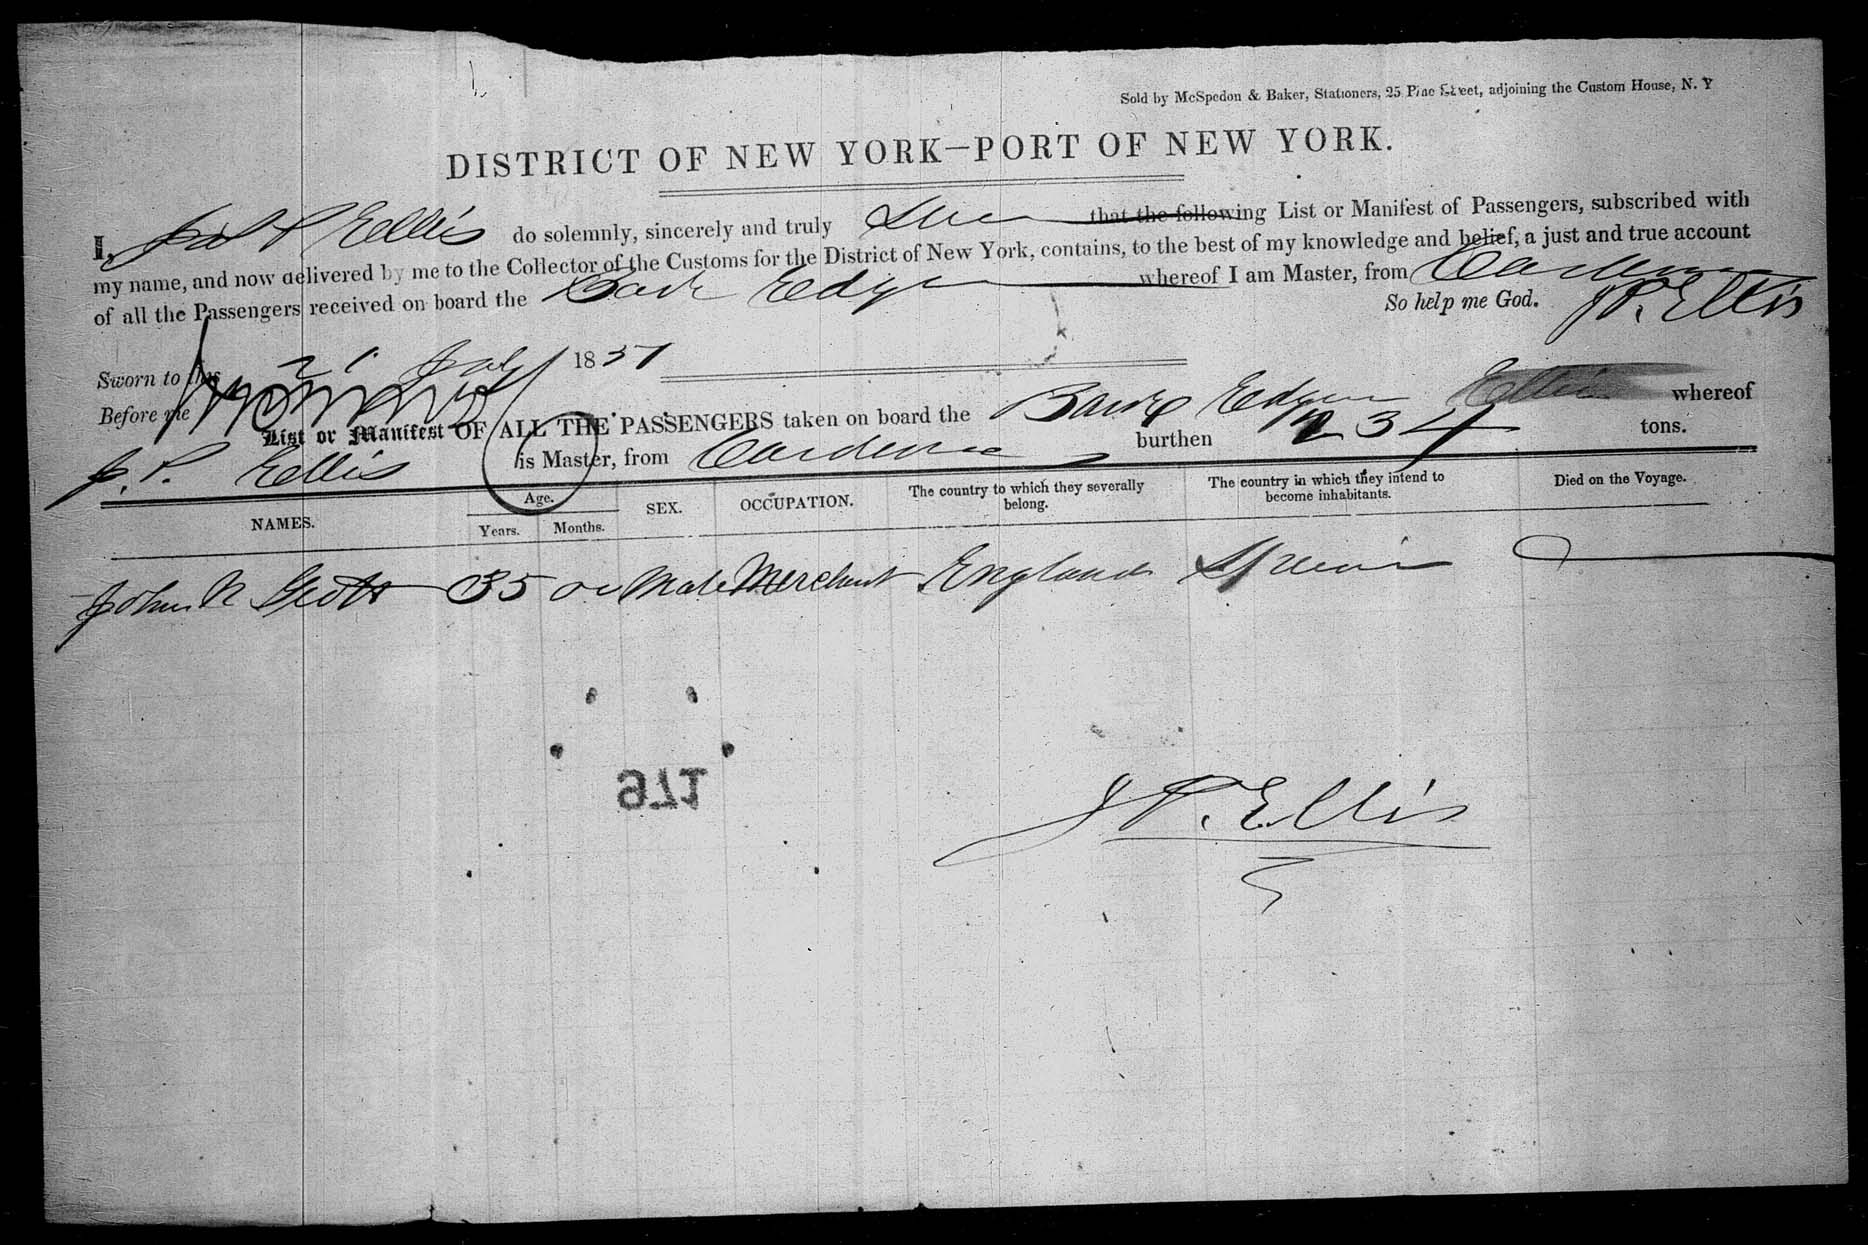 Sold by McSpedon & Baker, Stationers, 25 Pine Street, adjoining the Custom House, N. Y
DISTRICT OF NEW YORK—PORT OF NEW YORK.
I, Jas P Ellis do solemnly, sincerely and truly that the following List or Manifest of Passengers, subscribed with
my name, and now delivered by me to the Collector of the Customs for the District of New York, contains, to the best of my knowledge and belief, a just and true account
of all the Passengers received on board the Bark Edgar whereof I am Master, from Cardenas
So help me God. J P. Ellis
Sworn to this 21 July 1851
Before me
List or Manifest OF ALL THE PASSENGERS taken on board the Barke Edgar whereof
J. P. Ellis is Master, from Cardenas burthen 234 tons.
NAMES. Age. Years. Months. SEX. OCCUPATION. The country to which they severally belong. The country in which they intend to become inhabitants. Died on the Voyage.
John N Scott 35 Male Merchant England
971
J P. Ellis